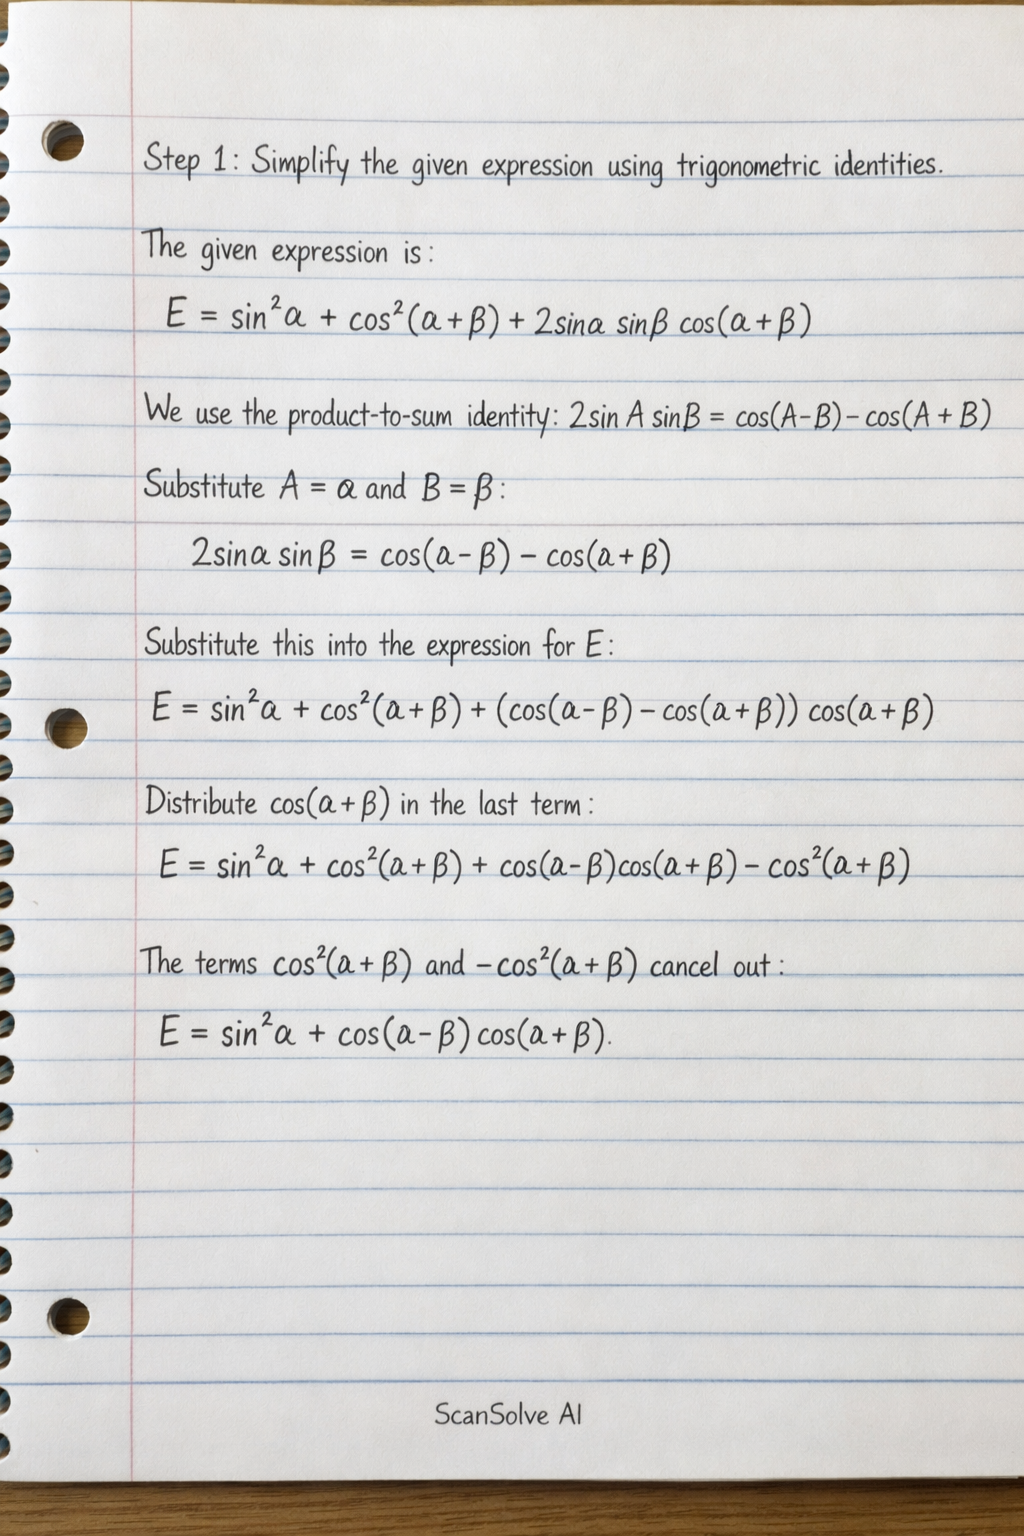 Step 1: Simplify the given expression using trigonometric identities.
The given expression is:
E = sin²α + cos²(α+β) + 2sinα sinβ cos(α+β)
We use the product-to-sum identity: 2sin A sinB = cos(A-B) - cos(A + B)
Substitute A = α and B = β:
2sinα sinβ = cos(α-β) - cos(α+β)
Substitute this into the expression for E:
E = sin²α + cos²(α+β) + (cos(α-β) - cos(α+β)) cos(α+β)
Distribute cos(α+β) in the last term:
E = sin²α + cos²(α+β) + cos(α-β)cos(α+β) - cos²(α+β)
The terms cos²(α+β) and -cos²(α+β) cancel out:
E = sin²α + cos(α-β) cos(α+β).
ScanSolve AI